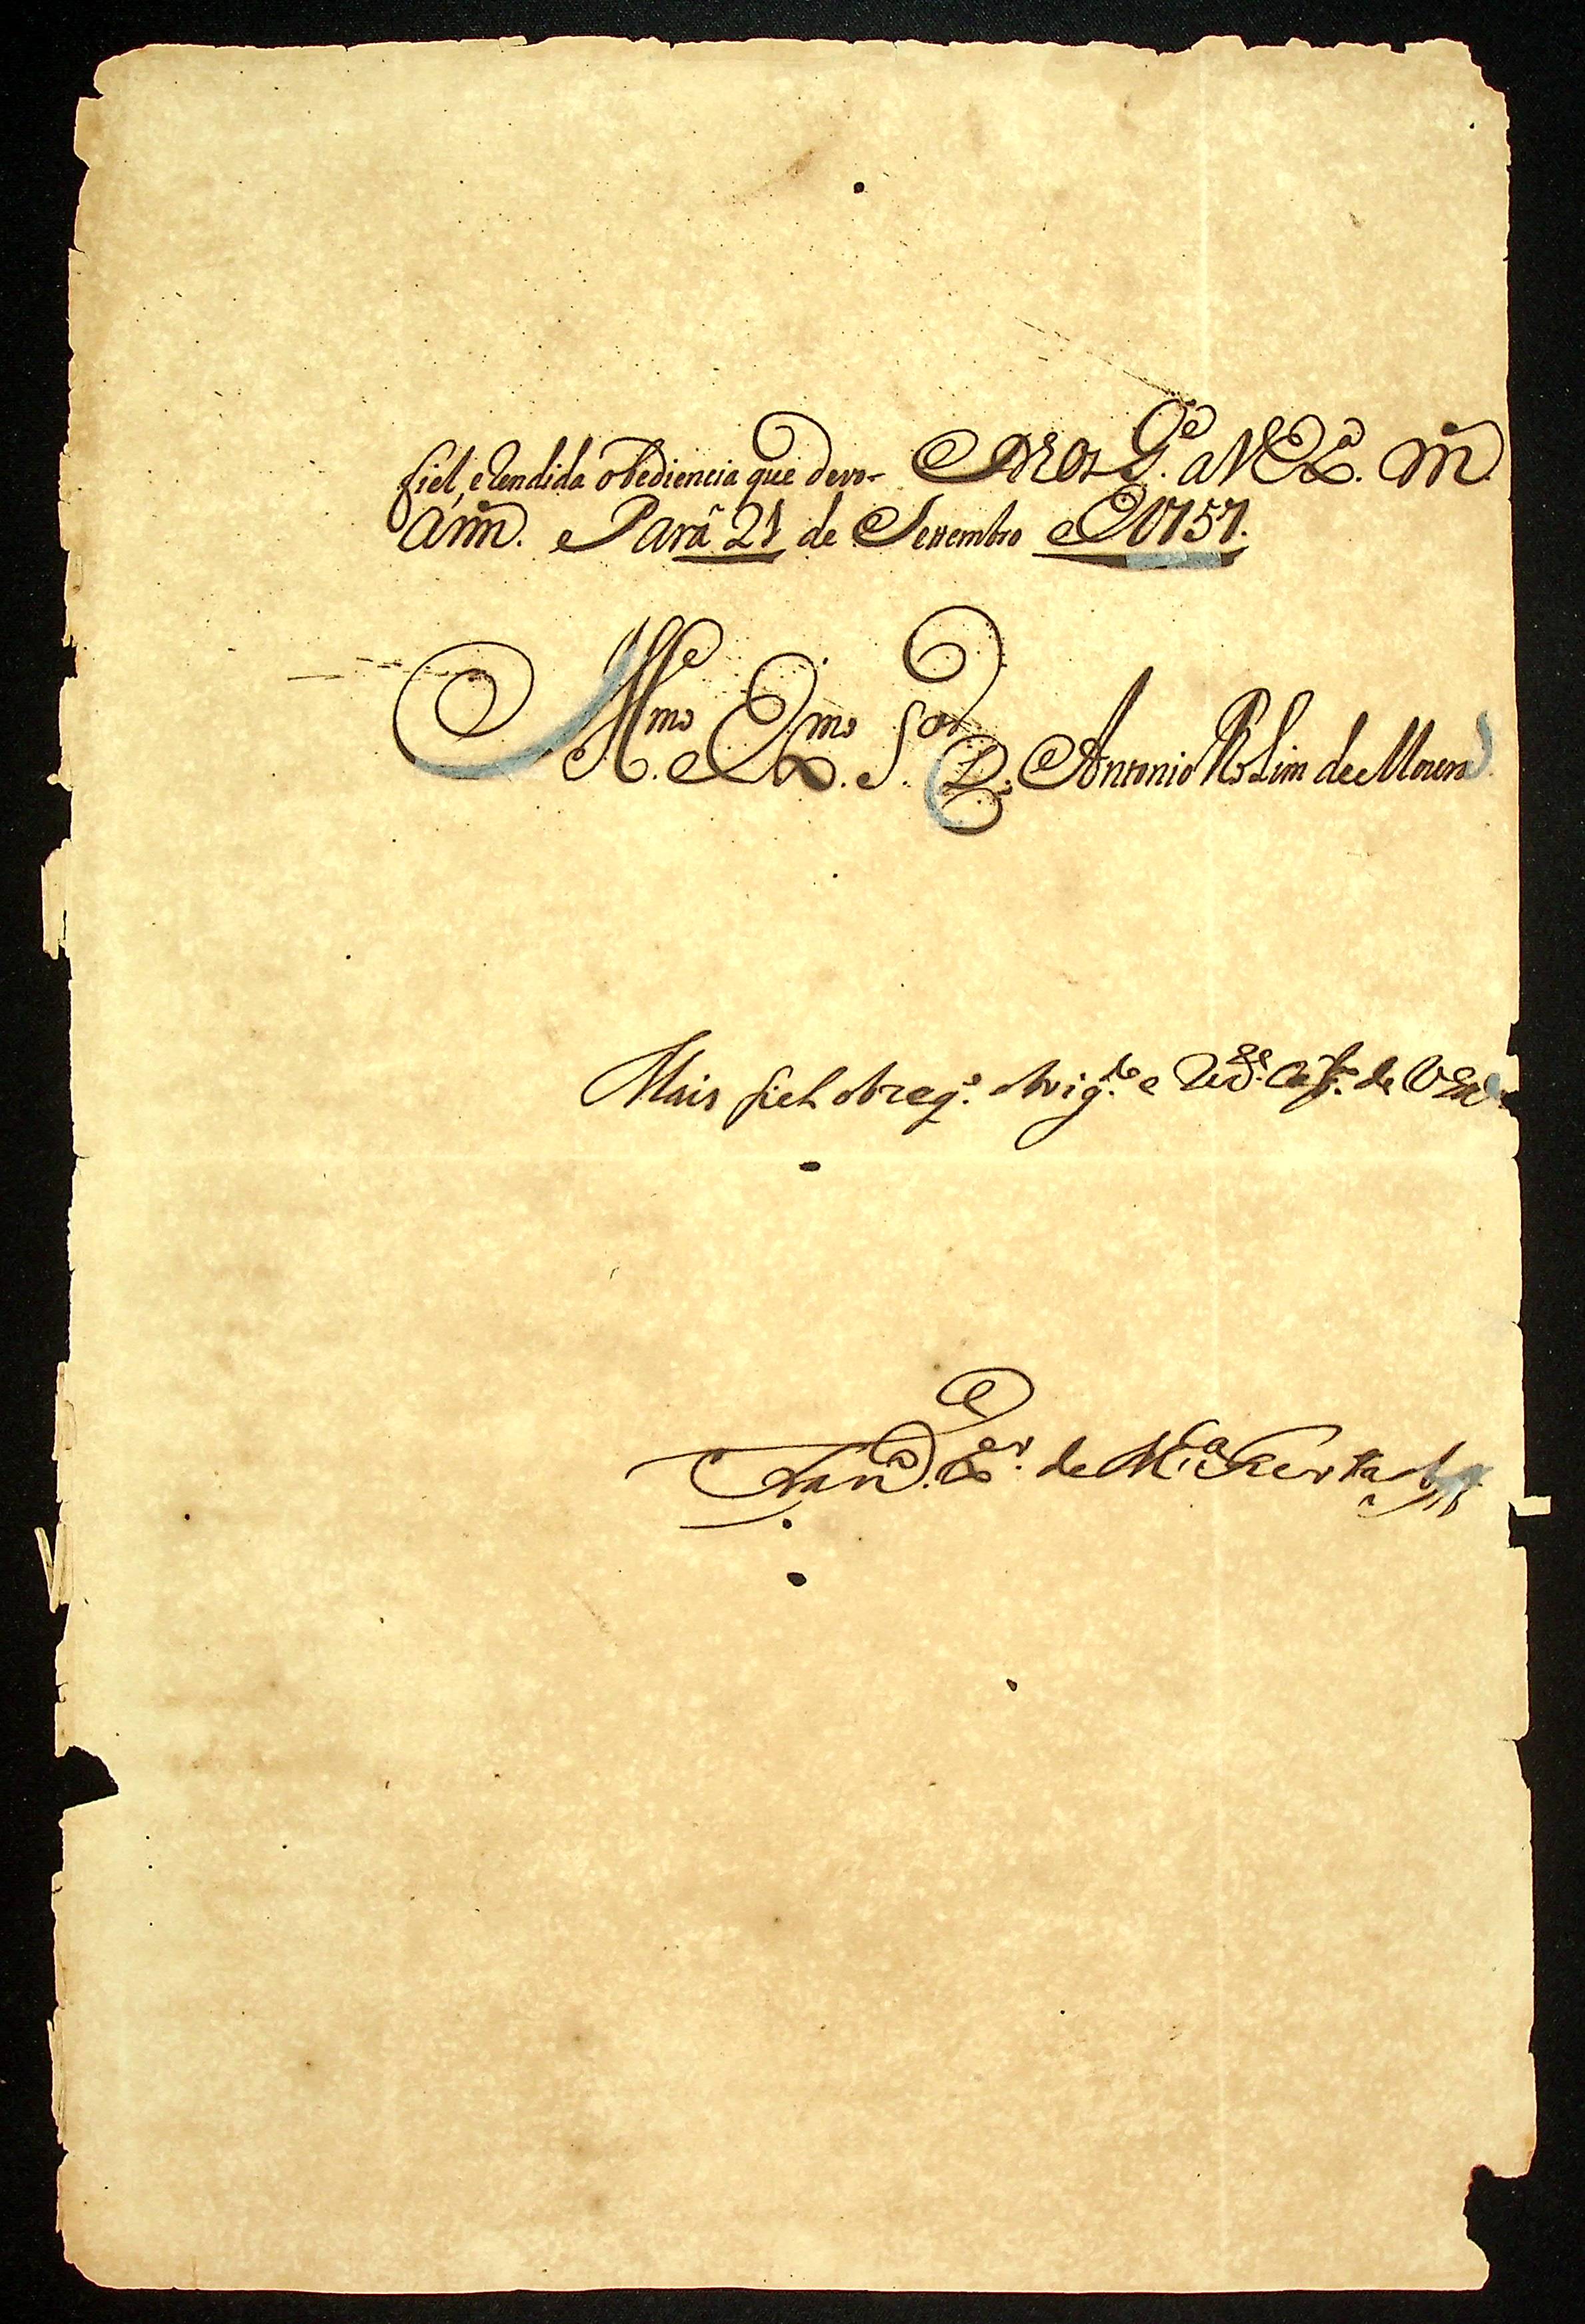 fiel, e Rendida obediencia que devo. Deos G.e a V. Ex.ª m.
ann. Pará 21 de Settembro de 1757.
Ill.mo e Ex.mo S.or D. Antonio Rolim de Moura
Mais fiel obseq.º obrig.do e de V Ex.ª
Fran.co X.er de M.ça Furtado